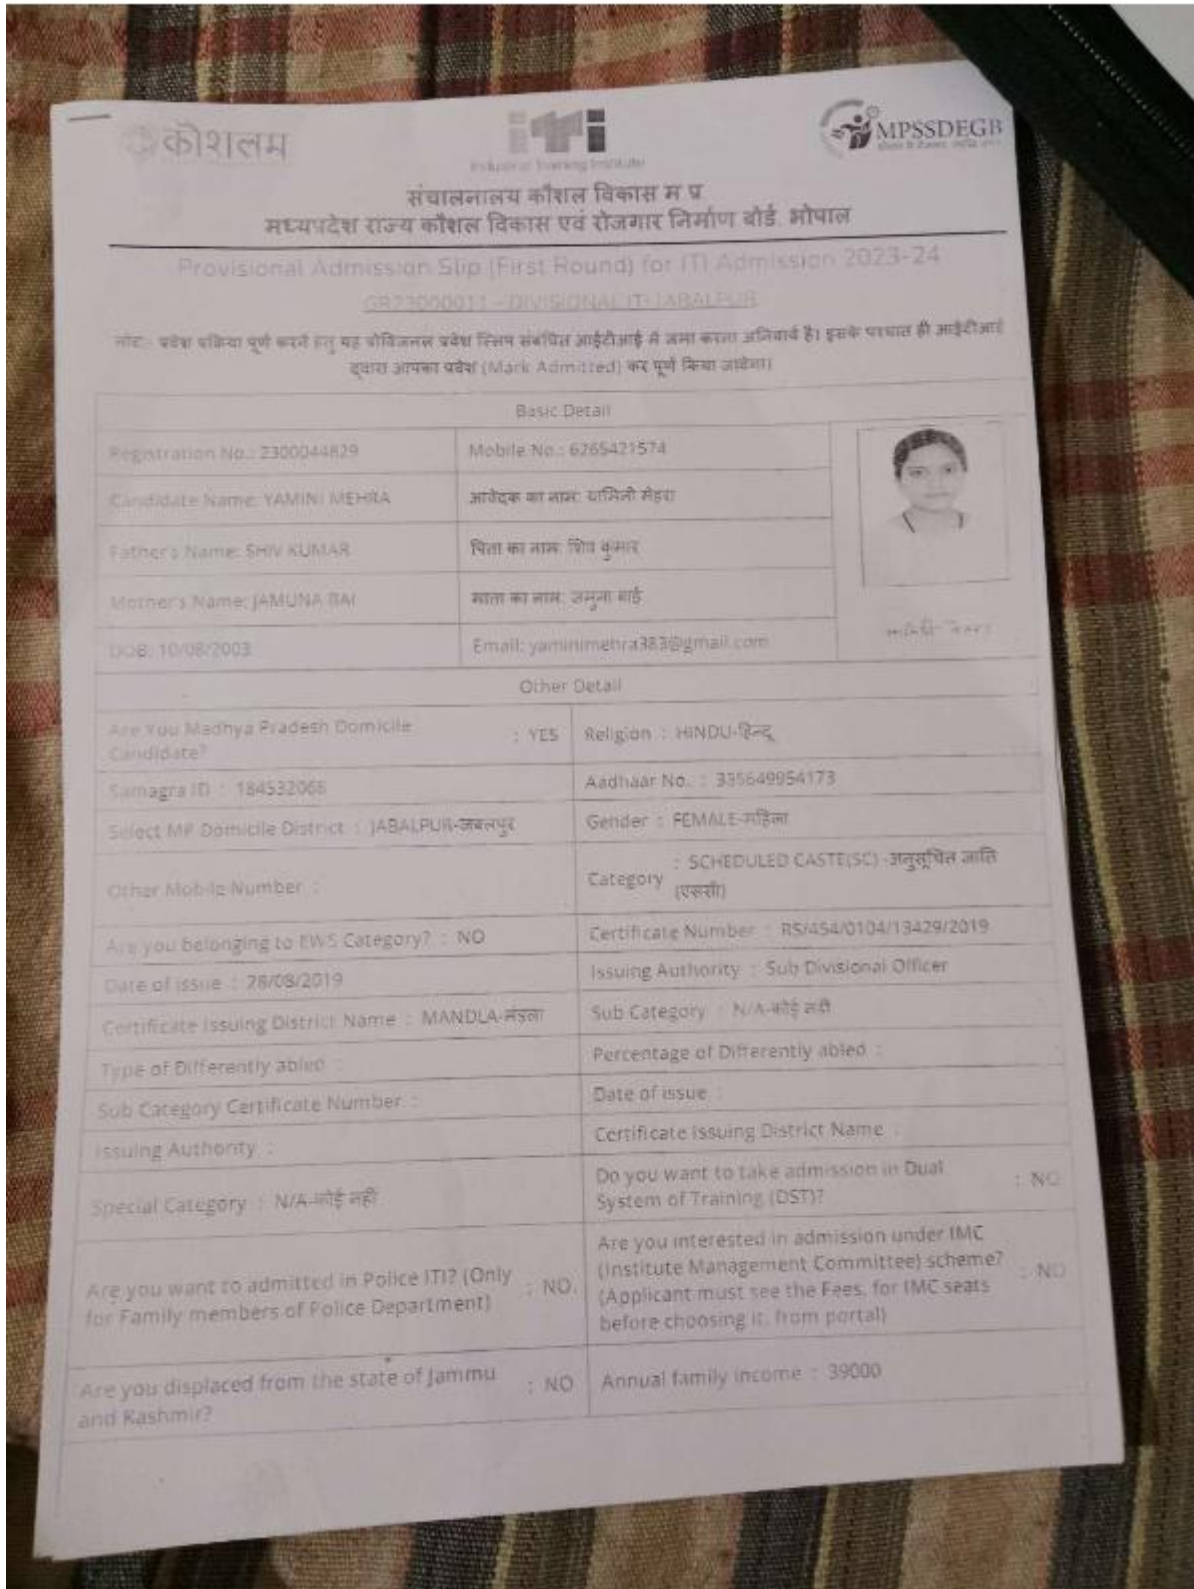 कौशलम
iTi
Industrial Training Institute
MPSSDEGB
संचालनालय कौशल विकास म प्र
मध्यप्रदेश राज्य कौशल विकास एवं रोजगार निर्माण बोर्ड, भोपाल
Provisional Admission Slip (First Round) for ITI Admission 2023-24
GR23000011 - DIVISIONAL ITI JABALPUR
नोट:- प्रवेश प्रक्रिया पूर्ण करने हेतु यह प्रोविजनल प्रवेश स्लिप संबंधित आईटीआई में जमा करना अनिवार्य है। इसके पश्चात ही आईटीआई
द्वारा आपका प्रवेश (Mark Admitted) कर पूर्ण किया जावेगा।
Basic Detail
Registration No.: 2300044829 Mobile No.: 6265421574
Candidate Name: YAMINI MEHRA आवेदक का नाम: यामिनी मेहरा
Father's Name: SHIV KUMAR पिता का नाम: शिव कुमार
Mother's Name: JAMUNA BAI माता का नाम: जमुना बाई
DOB: 10/08/2003 Email: yaminimehra383@gmail.com
Other Detail
Are You Madhya Pradesh Domicile : YES Religion : HINDU-हिन्दू
Candidate?
Samagra ID : 184532066 Aadhaar No. : 335649954173
Select MP Domicile District : JABALPUR-जबलपुर Gender : FEMALE-महिला
Other Mobile Number : Category : SCHEDULED CASTE(SC) -अनुसूचित जाति
(एससी)
Are you belonging to EWS Category? : NO Certificate Number : RS/454/0104/13429/2019
Date of issue : 28/08/2019 Issuing Authority : Sub Divisional Officer
Certificate Issuing District Name : MANDLA-मंडला Sub Category : N/A-कोई नहीं
Type of Differently abled : Percentage of Differently abled :
Sub Category Certificate Number : Date of issue :
Issuing Authority : Certificate Issuing District Name :
Special Category : N/A-कोई नहीं Do you want to take admission in Dual : NO
System of Training (DST)?
Are you want to admitted in Police ITI? (Only : NO
for Family members of Police Department)
Are you interested in admission under IMC
(Institute Management Committee) scheme? : NO
(Applicant must see the Fees, for IMC seats
before choosing it, from portal)
Are you displaced from the state of Jammu : NO Annual family income : 39000
and Kashmir?